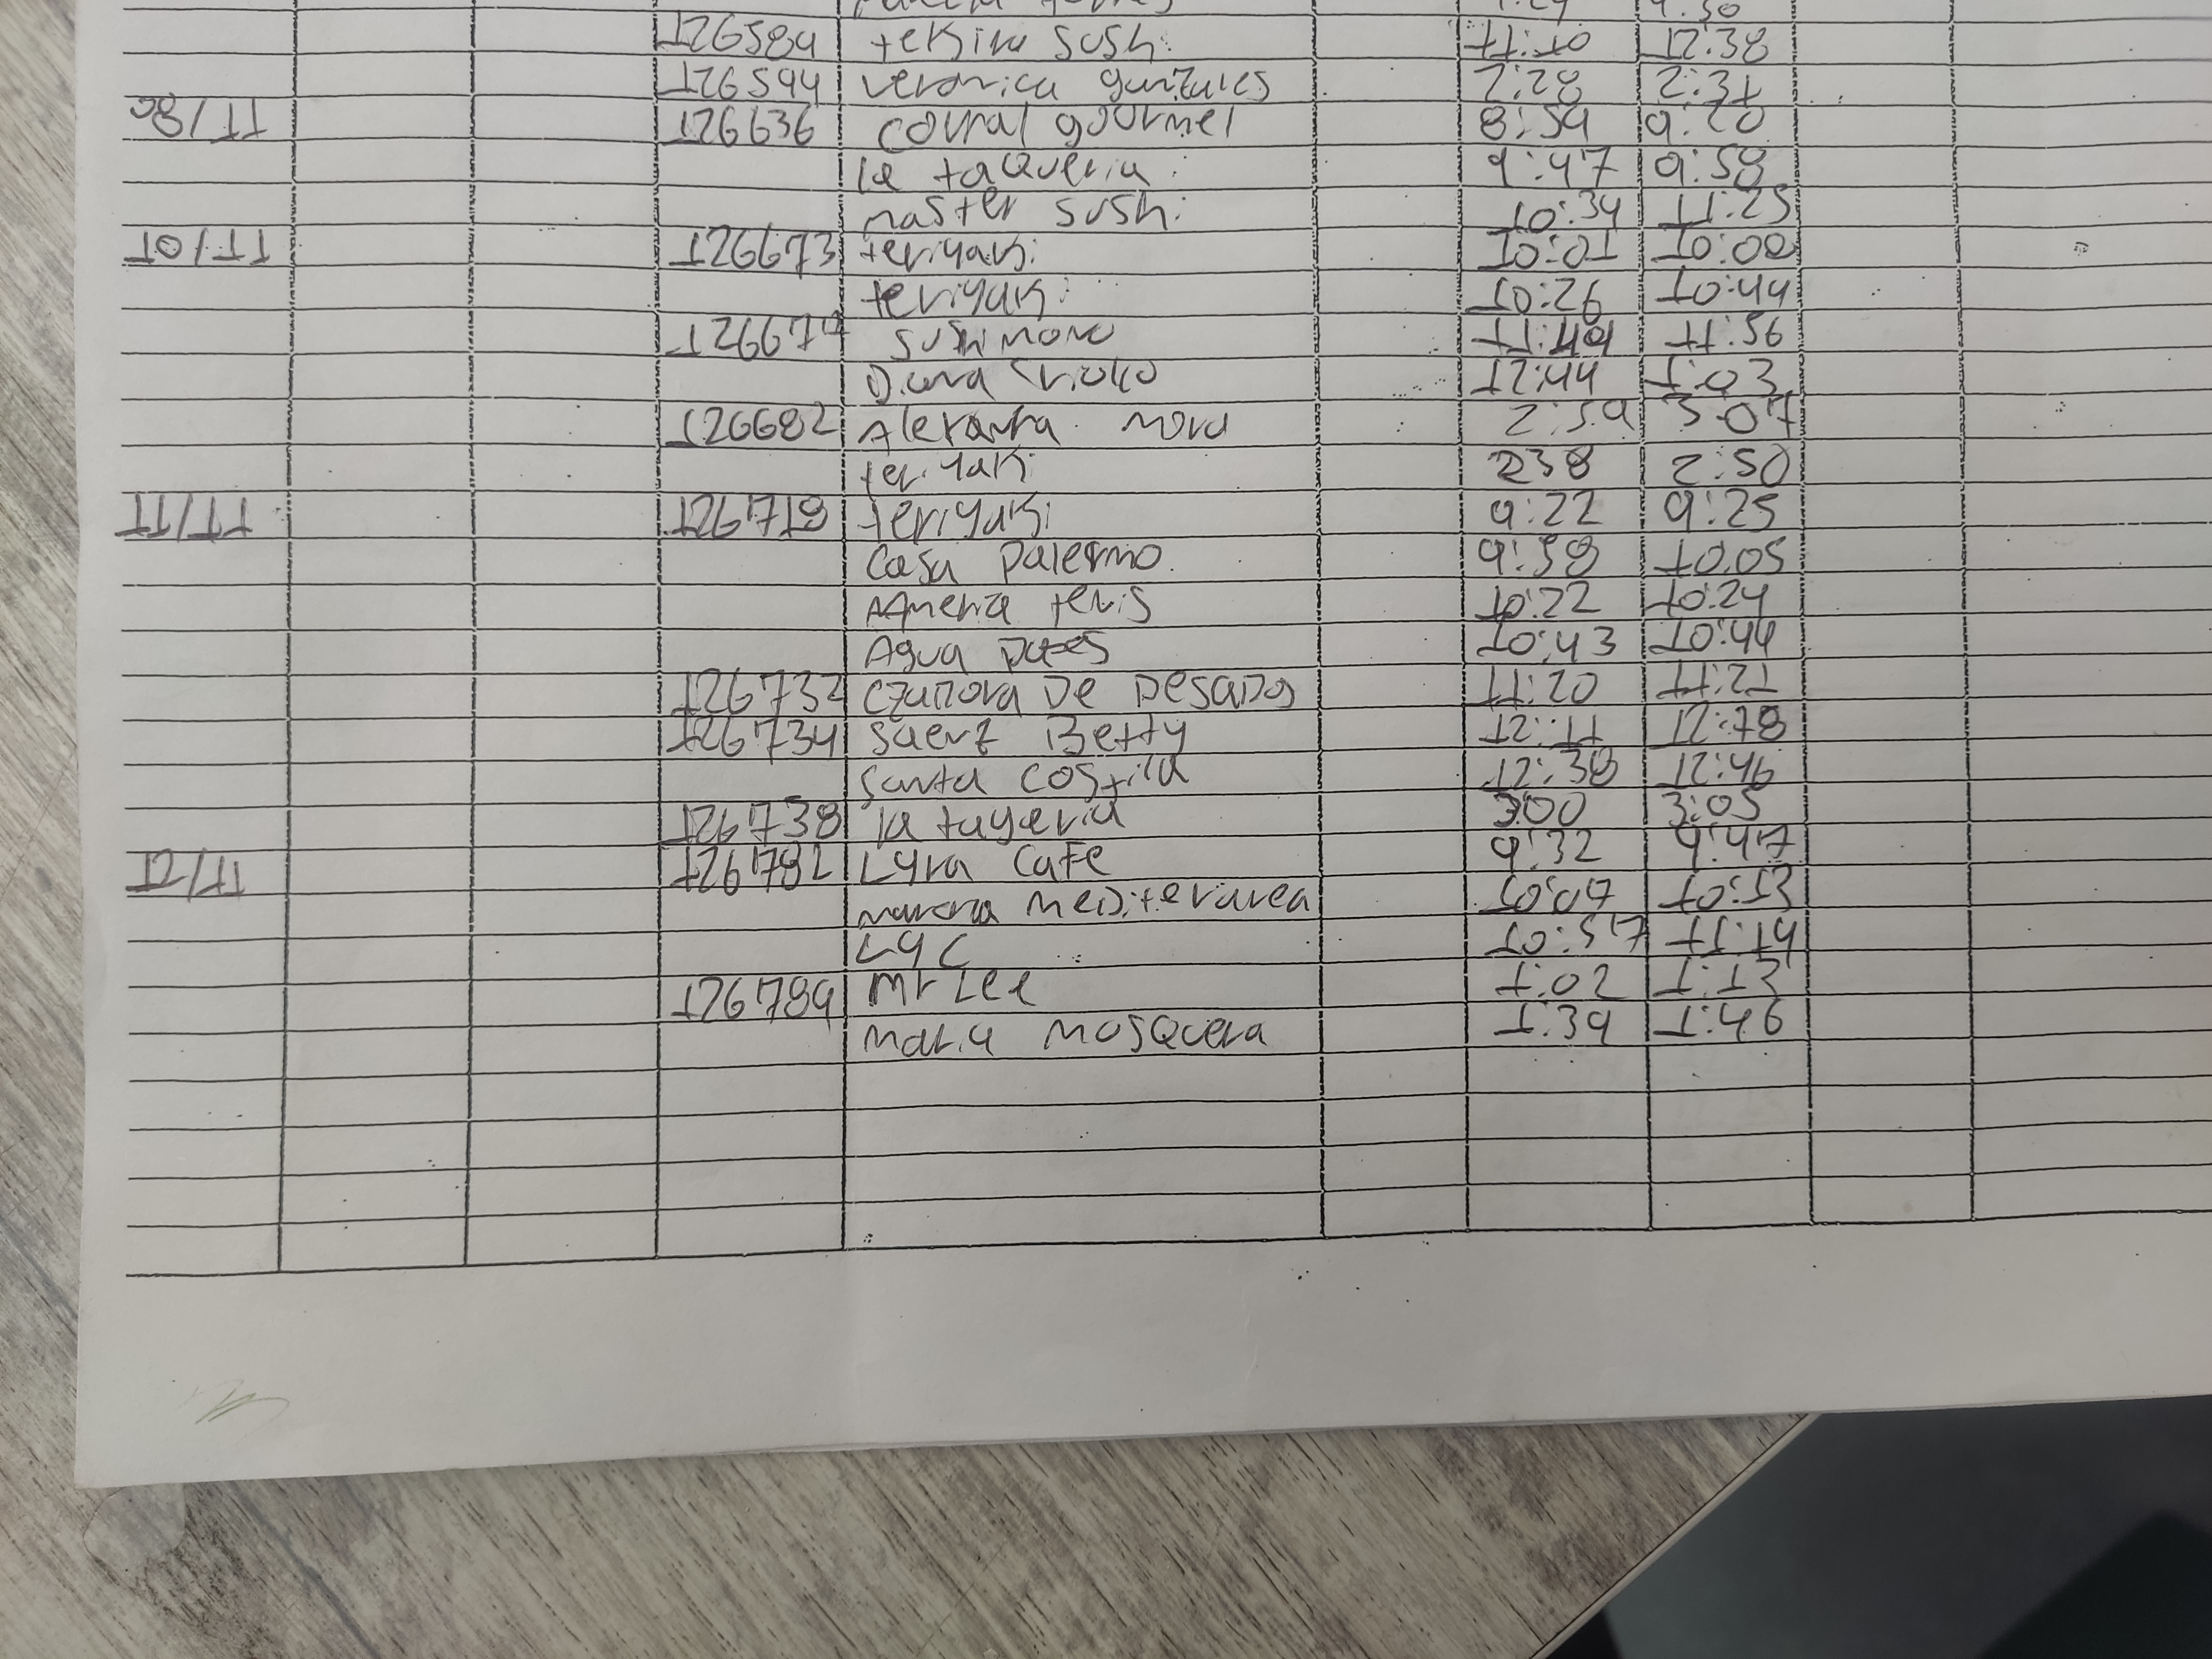 126589 tekiru sushi 11:10 12:38
126594 veronica gunzales 2:28 2:31
08/11 126636 corral gourmet 8:59 9:20
la taqueria 9:47 9:58
master sushi 10:34 11:25
10/11 126673 teriyaki 10:01 10:00
teriyaki 10:26 10:44
sushi moro 11:49 11:56
Diana 12:44 1:03
126682 Alexanra mora 2:59 3:07
teriyaki 238 2:50
11/11 126718 teriyaki 9:22 9:25
Casa palermo 9:58 10:05
America tenis 10:22 10:24
Agua 10:43 10:44
126732 czadora De pesados 11:20 11:21
126734 saenz Betty 12:11 12:18
santa costila 12:38 12:46
126738 la tayeria 3:00 3:05
12/11 126782 Lyra Cafe 9:32 9:47
mediterarea 10:07 10:13
LYC 10:57 11:19
126789 Mr Lee 1:02 1:13
maria Mosquera 1:39 1:46